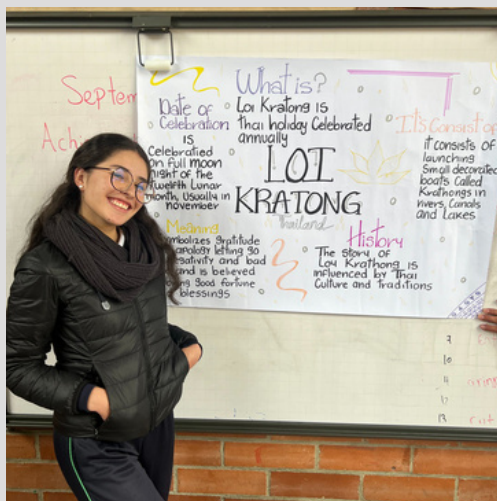 Septem
What is?
Loi Kratong is
thai holiday Celebrated
annually
Date of
Celebration
is
Celebratied
on full moon
night of the
twelfth Lunar
month, usually in
november
LOI
KRATONG
Thailand
It's Consist of
it consists of
launching
Small decorated
boats Called
Krathongs in
rivers, Canals
and Lakes
Meaning
mbolizes gratitude
apology letting go
egativity and bad
and is believed
ing good fortune
blessings
History
The story of
Loy Krathong is
influenced by Thai
Culture and traditions
7
10